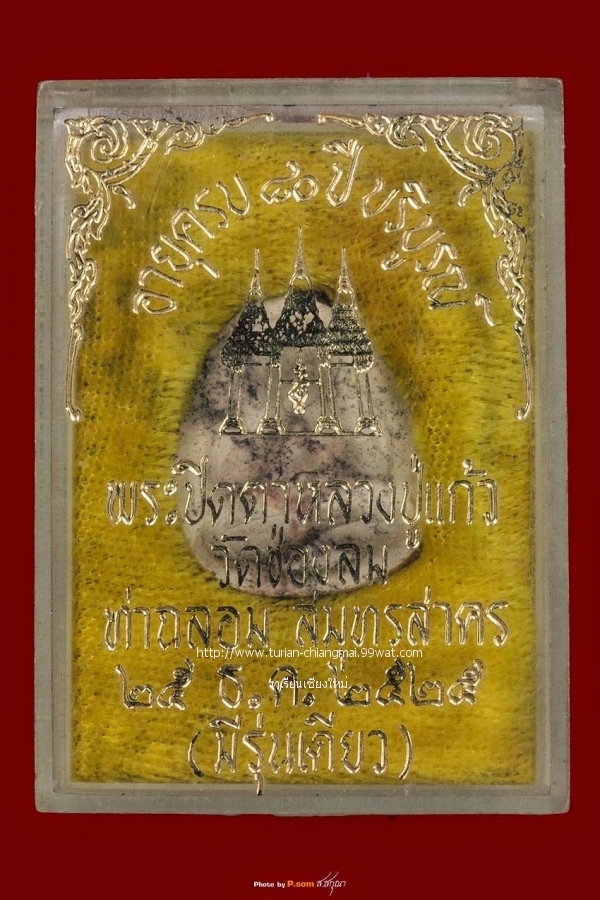 อายุครบ ๘๐ ปี บริบูรณ์
พระปิดตาหลวงปู่แก้ว
วัดช่องลม
ท่าฉลอม สมุทรสาคร
http://www.turian-chiangmai.99wat.com
๒๕ ธ.ค. ๒๕๒๕
ทุเรียนเชียงใหม่
(มีรุ่นเดียว)
Photo by P.som